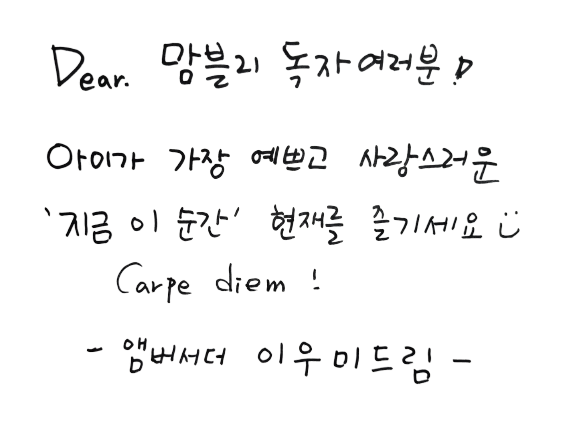 Dear. 맘블리 독자여러분!
아이가 가장 예쁘고 사랑스러운
'지금 이 순간' 현재를 즐기세요 :)
Carpe diem !
- 앰버서더 이우미드림 -